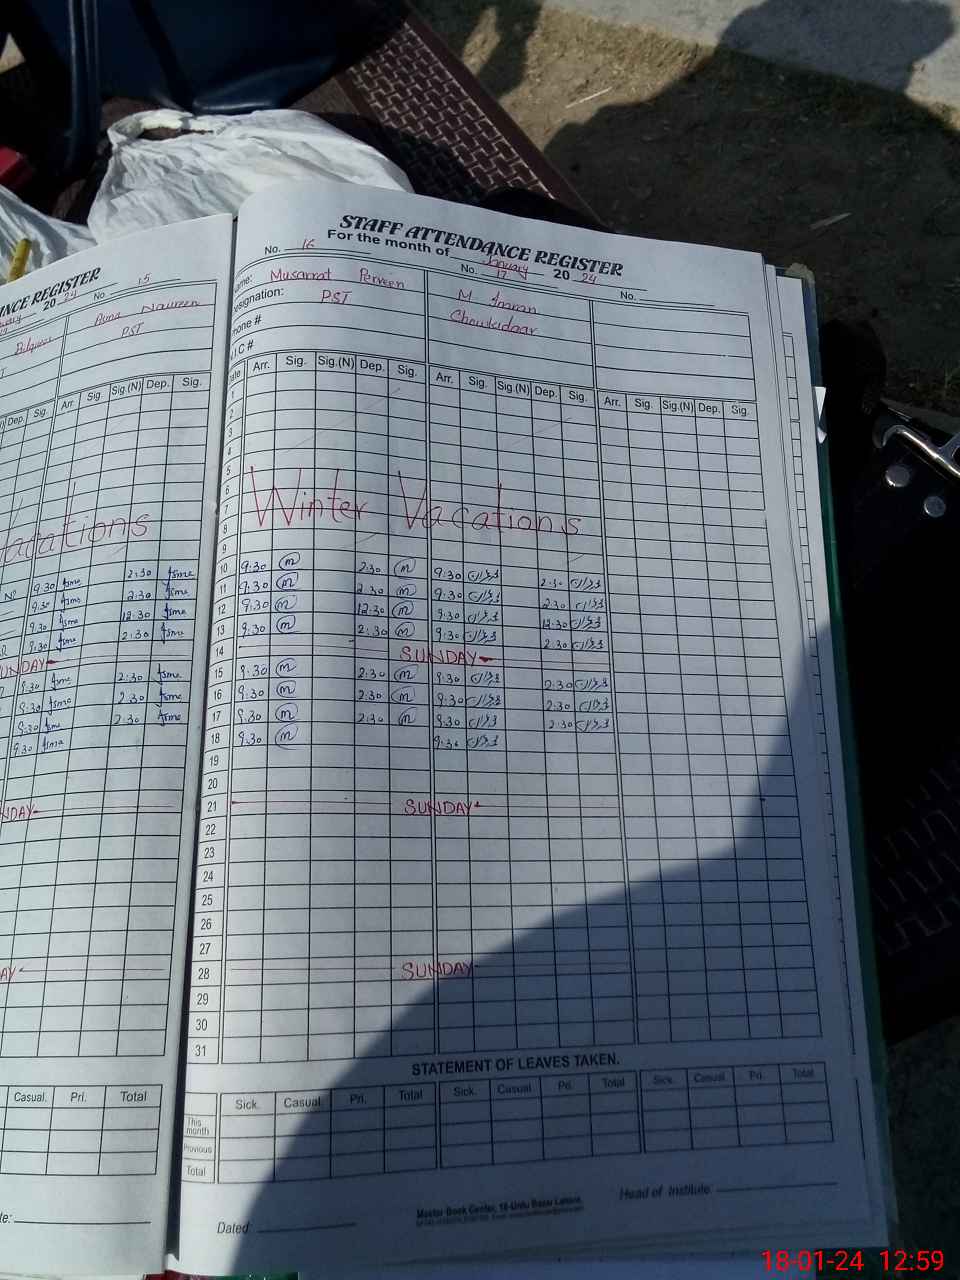 NCE REGISTER
20 24 No. 15
Bilquees Asma Naureen
PST
Dep. Sig. Arr. Sig. Sig.(N) Dep. Sig.
acations
9:30 Asma 2:30 Asma
9:30 Asma 2:30 Asma
9:30 Asma 12:30 Asma
9:30 Asma 2:30 Asma
SUNDAY
9:30 Asma 2:30 Asma
9:30 Asma 2:30 Asma
9:30 Asma 2:30 Asma
9:30 Asma
NDAY
AY
Casual. Pri. Total
STAFF ATTENDANCE REGISTER
For the month of January 20 24
No. 16 No. 17 No.
Name: Musarrat Perveen M Imran
Designation: PST Chowkidaar
Phone #
I C #
Date Arr. Sig. Sig.(N) Dep. Sig. Arr. Sig. Sig.(N) Dep. Sig. Arr. Sig. Sig.(N) Dep. Sig.
1
2
3
4
5
6
7 Winter Vacations
8
9
10 9:30 m 2:30 m 9:30 2:30
11 9:30 m 2:30 m 9:30 2:30
12 9:30 m 12:30 m 9:30 12:30
13 9:30 m 2:30 m 9:30 2:30
14 SUNDAY
15 9:30 m 2:30 m 9:30 2:30
16 9:30 m 2:30 m 9:30 2:30
17 9:30 m 2:30 m 9:30 2:30
18 9:30 m 9:30
19
20
21 SUNDAY
22
23
24
25
26
27
28 SUNDAY
29
30
31
STATEMENT OF LEAVES TAKEN.
Sick. Casual Pri. Total Sick. Casual Pri. Total Sick. Casual Pri. Total
This month
Previous
Total
Dated: Master Book Center, 16-Urdu Bazar Lahore. Head of Institute
18-01-24 12:59